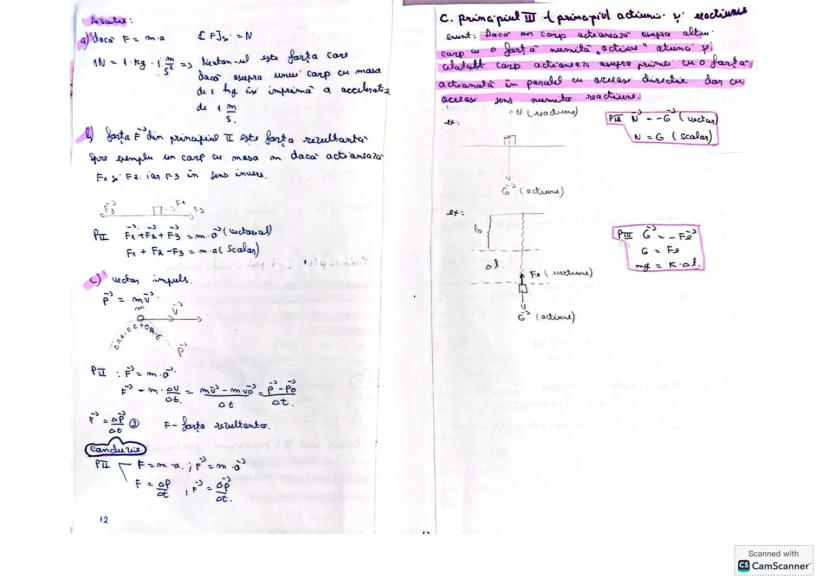 a) dacă F = m·a [F]SI = N
1N = 1·kg·1 m/s => Newton-ul este forța care
dacă asupra unui corp cu masa
de 1 kg îi imprimă a accelerație
de 1 m/s.
b) forța F din principiul II este forța rezultantă
spre exemplu un corp cu masa m dacă acționează
F1 și F2 iar F3 în sens invers.
F3 F1 F2
PII F1+F2+F3 = m·a (vectorial)
F1 + F2 - F3 = m·a (scalar)
c) vector impuls.
p = mv
m v
TRAIECTORIE
p
PII : F = m·a
F = m·Δv/Δt = mv - mv0/Δt = p - p0/Δt.
F = Δp/Δt F- forța rezultantă.
Concluzie
PII F = m·a ; F = m·a
F = Δp/Δt ; F = Δp/Δt.
12
C. principiul III principiul acțiunii și reacțiunii
enunț: Dacă un corp acționează asupra altui
corp cu o forță numită „acțiune" atunci și
celălalt corp acționează asupra primei cu o forță
acționată în paralel cu aceeași direcție dar cu
același sens numită reacțiune.
ex: N (reacțiune)
PIII N = -G (vector)
N = G (scalar)
G (acțiune)
ex:
l0
PIII G = -Fe
G = Fe
mg = K·Δl.
Δl
Fe (reacțiune)
G (acțiune)
Scanned with
CS CamScanner